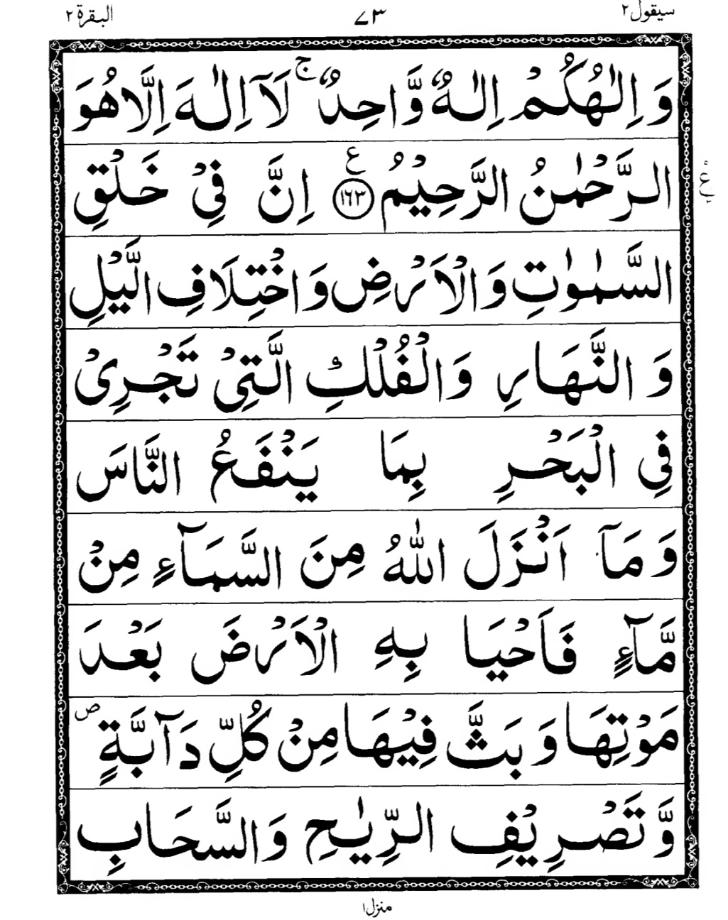 سيقول ٢ ٧٣ البقرة ٢
وَ اِلٰهُكُمْ اِلٰهٌ وَّاحِدٌ ۚ لَآ اِلٰهَ اِلَّا هُوَ
الرَّحْمٰنُ الرَّحِيْمُ ﴿۱۶۳﴾ ع اِنَّ فِيْ خَلْقِ
السَّمٰوٰتِ وَ الْاَرْضِ وَ اخْتِلَافِ الَّيْلِ
وَ النَّهَارِ وَ الْفُلْكِ الَّتِيْ تَجْرِيْ
فِي الْبَحْرِ بِمَا يَنْفَعُ النَّاسَ
وَ مَآ اَنْزَلَ اللّٰهُ مِنَ السَّمَآءِ مِنْ
مَّآءٍ فَاَحْيَا بِهِ الْاَرْضَ بَعْدَ
مَوْتِهَا وَ بَثَّ فِيْهَا مِنْ كُلِّ دَآبَّةٍ ص
وَّ تَصْرِيْفِ الرِّيٰحِ وَ السَّحَابِ
منزل ١